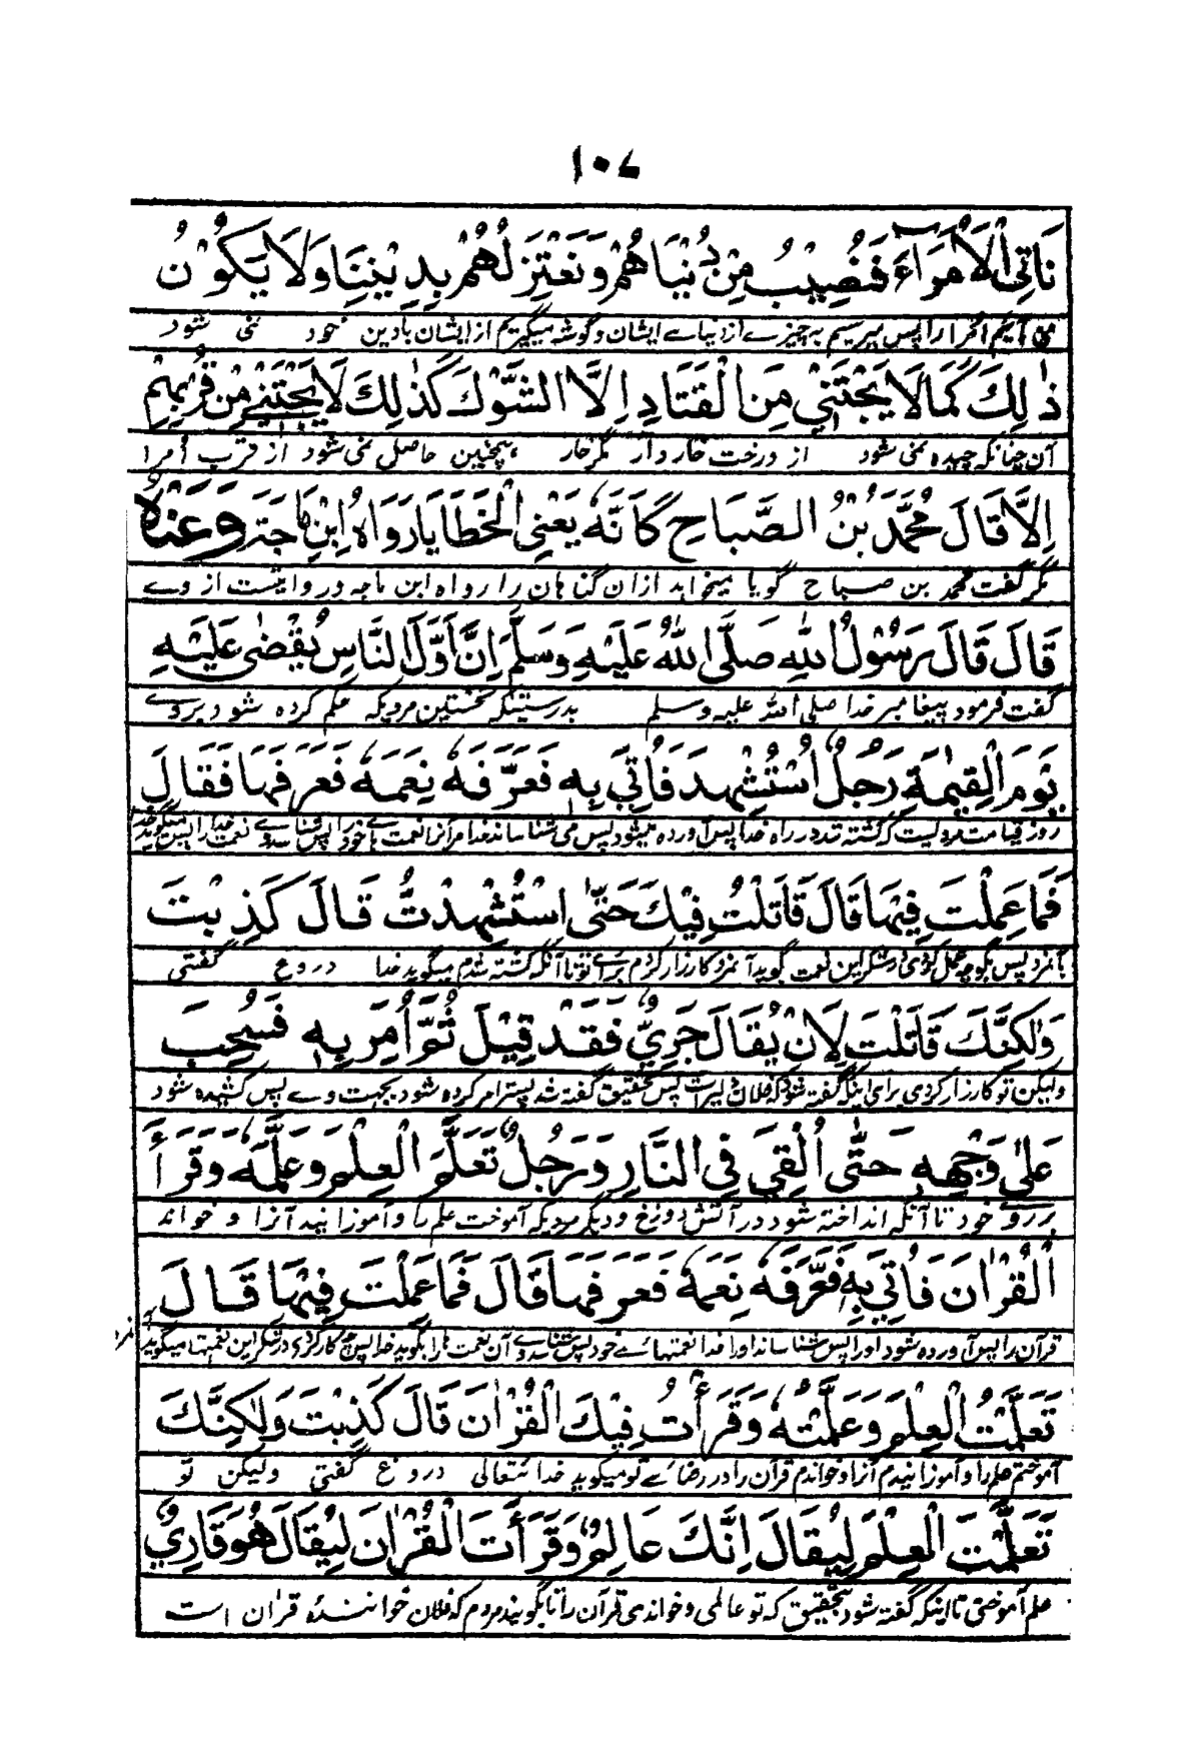 ۱۰۷
نَاتِى الْاُمَرَاءَ فَنُصِيْبُ مِنْ دُنْيَاهُمْ وَنَعْتَزِلُهُمْ بِدِيْنِنَا وَلَا يَكُوْنُ
می آئیم امرا را پس میرسیم به چیزے از دنیاے ایشان و گوشه میگیریم از ایشان بادین خود نمی شود
ذٰلِكَ كَمَا لَا يَجْتَنِىْ مِنَ الْقَتَادِ اِلَّا الشَّوْكَ كَذٰلِكَ لَا يَجْتَنِىْ مِنْ قُرْبِهِمْ
آن چنانکه چیده نمی شود از درخت خاردار مگر خار همچنین حاصل نمی شود از قرب اُمرا
اِلَّا قَالَ مُحَمَّدُ بْنُ الصَّبَاحِ كَاَنَّهٗ يَعْنِى الْخَطَايَا رَوَاهُ ابْنُ مَاجَةَ وَعَنْهُ
مگر گفت محمد بن صباح گویا میخواهد ازان گناهان را رواه ابن ماجه و روایتست از وے
قَالَ قَالَ رَسُوْلُ اللهِ صَلَّى اللهُ عَلَيْهِ وَسَلَّمَ اِنَّ اَوَّلَ النَّاسِ يُقْضٰى عَلَيْهِ
گفت فرمود پیغامبر خدا صلی الله علیه وسلم بدرستیکه نخستین مردیکه حکم کرده شود بروے
يَوْمَ الْقِيٰمَةِ رَجُلٌ اُسْتُشْهِدَ فَاُتِىَ بِهٖ فَعَرَّفَهٗ نِعَمَهٗ فَعَرَفَهَا فَقَالَ
روز قیامت مردیست که کشته شده در راه خدا پس آورده میشود پس می شناساند خدا مر آنرا نعمت
فَمَا عَمِلْتَ فِيْهَا قَالَ قَاتَلْتُ فِيْكَ حَتّٰى اسْتُشْهِدْتُّ قَالَ كَذَبْتَ
گوید آنمرد کارزار کردم براے تو تا آنکه کشته شدم میگوید خدا دروغ گفتی
وَلٰكِنَّكَ قَاتَلْتَ لِاَنْ يُقَالَ جَرِىٌّ فَقَدْ قِيْلَ ثُمَّ اُمِرَ بِهٖ فَسُحِبَ
ولیکن تو کارزار کردی برای اینکه گفته شود که فلان دلیرست پس بتحقیق گفته شد پستر امر کرده شود بجهت وے پس کشیده شود
عَلٰى وَجْهِهٖ حَتّٰى اُلْقِىَ فِى النَّارِ وَرَجُلٌ تَعَلَّمَ الْعِلْمَ وَعَلَّمَهٗ وَقَرَأَ
بررو خود تا آنکه انداخته شود در آتش دوزخ و دیگر مردیکه آموخت علم را و آموزانید آنرا و خواند
الْقُرْاٰنَ فَاُتِىَ بِهٖ فَعَرَّفَهٗ نِعَمَهٗ فَعَرَفَهَا قَالَ فَمَا عَمِلْتَ فِيْهَا قَالَ
قرآن را پس آورده شود او را پس شناساند او را خدا نعمتهائے خود پس شناسد آن نعمت را بگوید خدا پس چه کار کردی در شکر این نعمتها میگوید آنمرد
تَعَلَّمْتُ الْعِلْمَ وَعَلَّمْتُهٗ وَقَرَأْتُ فِيْكَ الْقُرْاٰنَ قَالَ كَذَبْتَ وَلٰكِنَّكَ
آموختم علم را و آموزانیدم آنرا و خواندم قرآن را در رضائے تو میگوید خدا تعالی دروغ گفتی ولیکن تو
تَعَلَّمْتَ الْعِلْمَ لِيُقَالَ اِنَّكَ عَالِمٌ وَقَرَأْتَ الْقُرْاٰنَ لِيُقَالَ هُوَ قَارِئٌ
علم آموختی تا اینکه گفته شود بتحقیق که تو عالمی و خواندی قرآن را تا بگویند مردم که فلان خوانندهٔ قرآن است